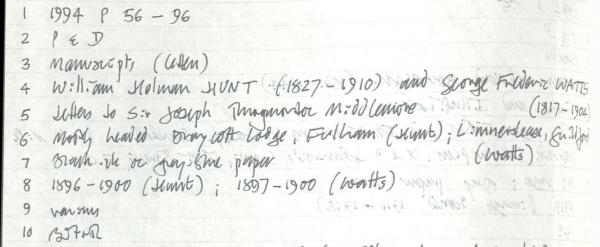 1 1994 P 56 - 96
2 P & D
3 Manuscripts (letters)
4 William Holman HUNT (1827-1910) and George Frederic WATTS
5 Letters to Sir Joseph Middlemore (1817-1904)
6 Mostly headed Draycott Lodge, Fulham (Hunt); Limnerslease, Guildford
7 Black ink on grey/blue paper (Watts)
8 1896-1900 (Hunt); 1897-1900 (Watts)
9 various
10